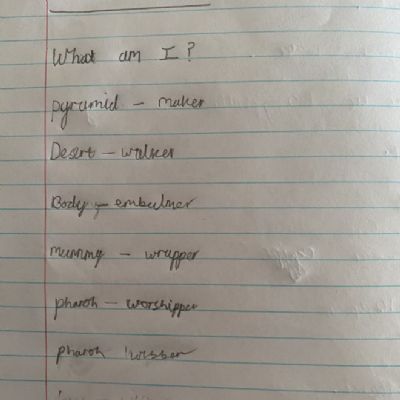 What am I?
pyramid - maker
Desert - walker
Body - embalmer
mummy - wrapper
pharoh - worshipper
pharoh